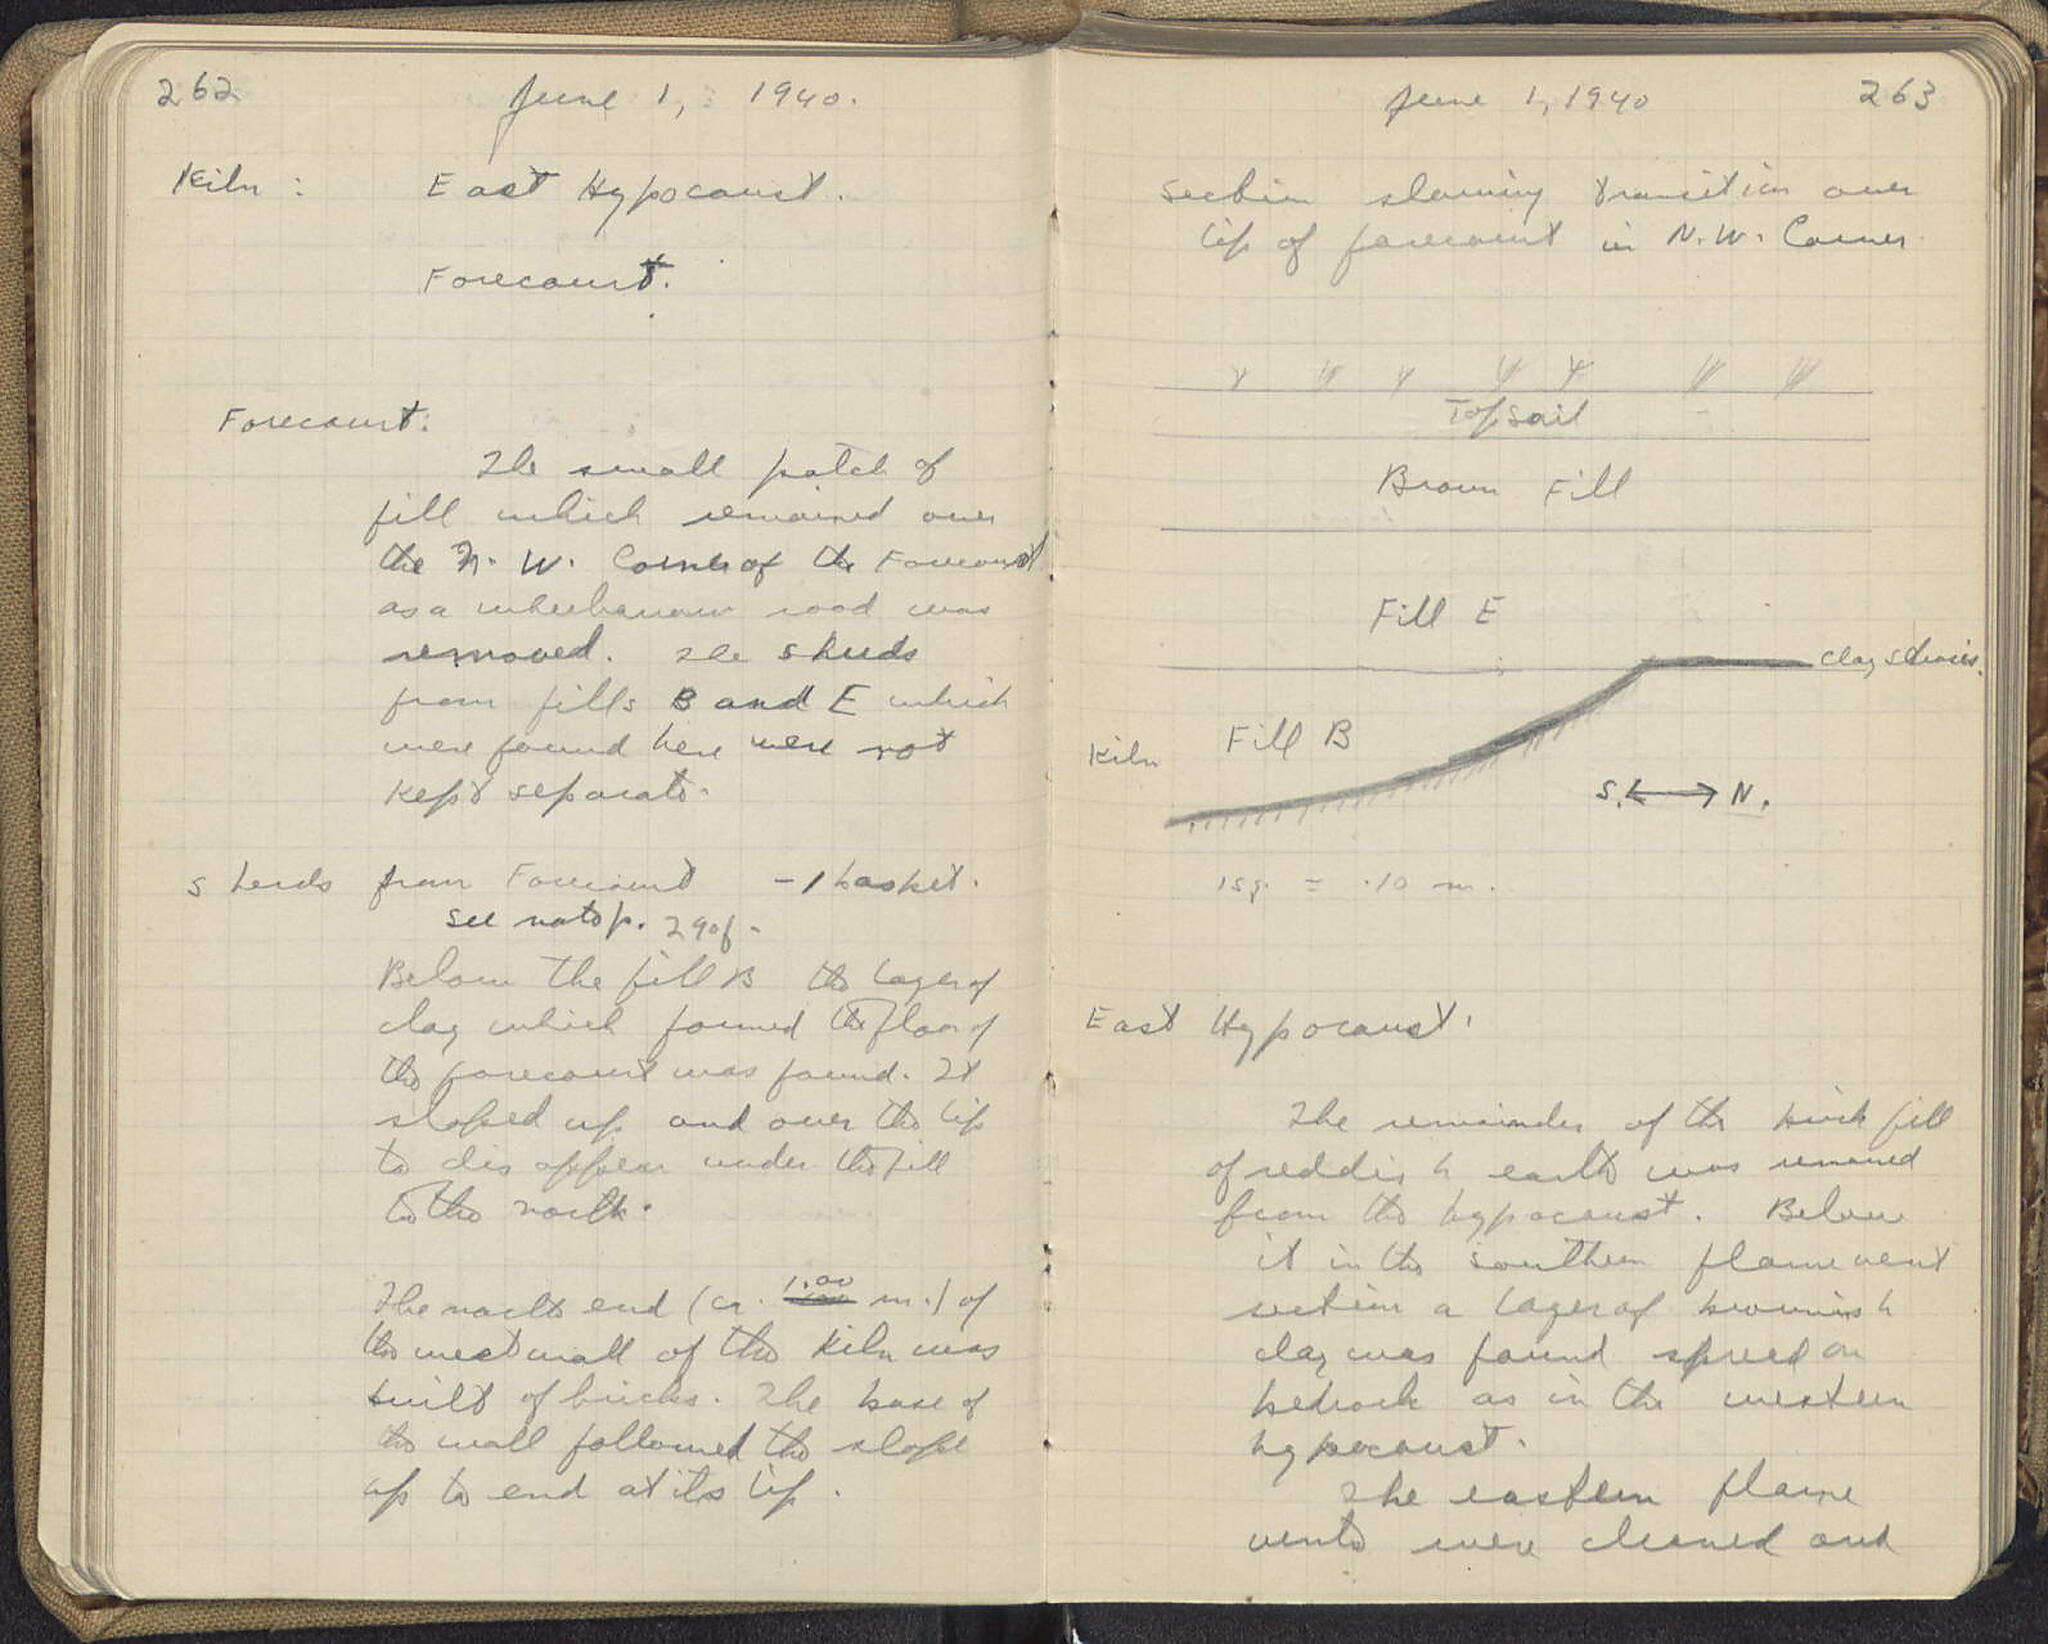 262
June 1, 1940.
Kiln : East Hypocaust.
Forecourt.
Forecourt:
The small patch of
fill which remained over
the N. W. Corner of the Forecourt
as a wheelbarrow road was
removed. The sherds
from fills B and E which
were found here were not
kept separate.
Sherds from Forecourt - 1 basket.
see note p. 290f.
Below the fill B the layer of
clay which formed the floor of
the forecourt was found. It
sloped up and over the lip
to disappear under the fill
to the north.
The north end (ca. 1.00 m.) of
the west wall of the kiln was
built of bricks. The base of
the wall followed the slope
up to end at its lip.
June 1, 1940
263
Section showing transition over
lip of forecourt in N. W. Corner
Topsoil
Brown Fill
Fill E
Clay
Fill B
Kiln
S. N.
1 sq. = .10 m.
East Hypocaust.
The remainder of the brick fill
of reddish earth was removed
from the hypocaust. Below
it in the southern flame vent
section a layer of brownish
clay was found spread on
bedrock as in the western
hypocaust.
The eastern flame
vents were cleaned and